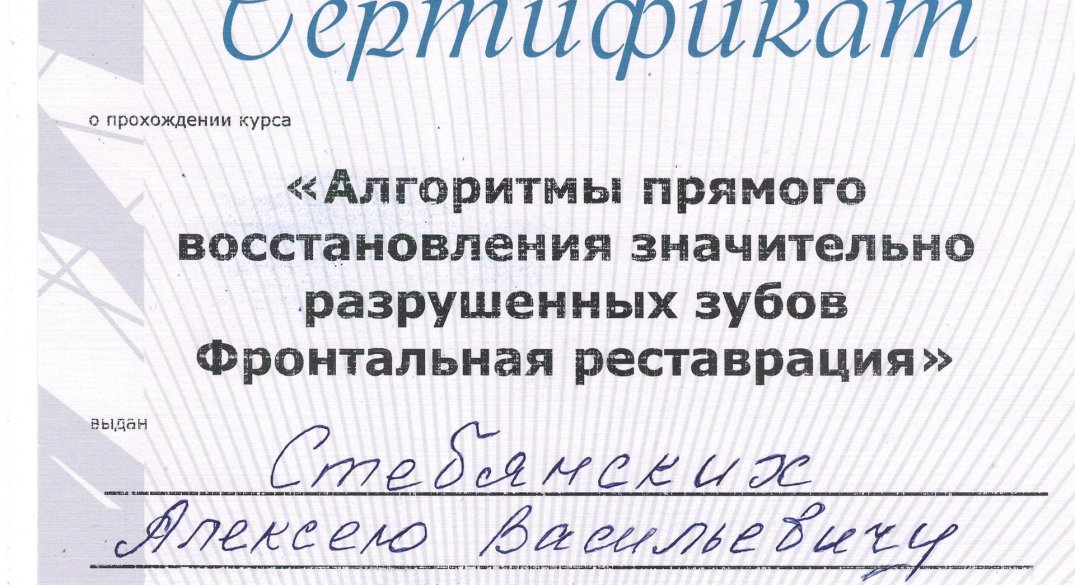 Сертификат
о прохождении курса
«Алгоритмы прямого
восстановления значительно
разрушенных зубов
Фронтальная реставрация»
выдан
Стебянских
Алексею Васильевичу